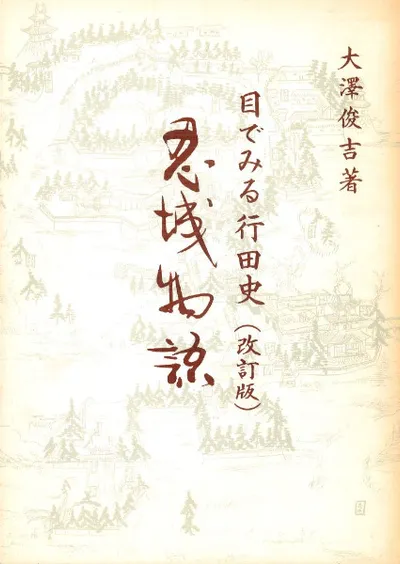 大澤俊吉著
目でみる行田史（改訂版）
忍城物語